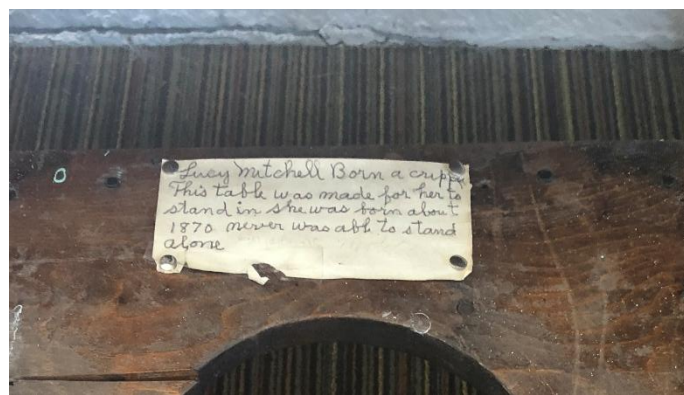 Lucy Mitchell Born a cripple
This table was made for her to
stand in she was born about
1870 never was abl to stand
alone